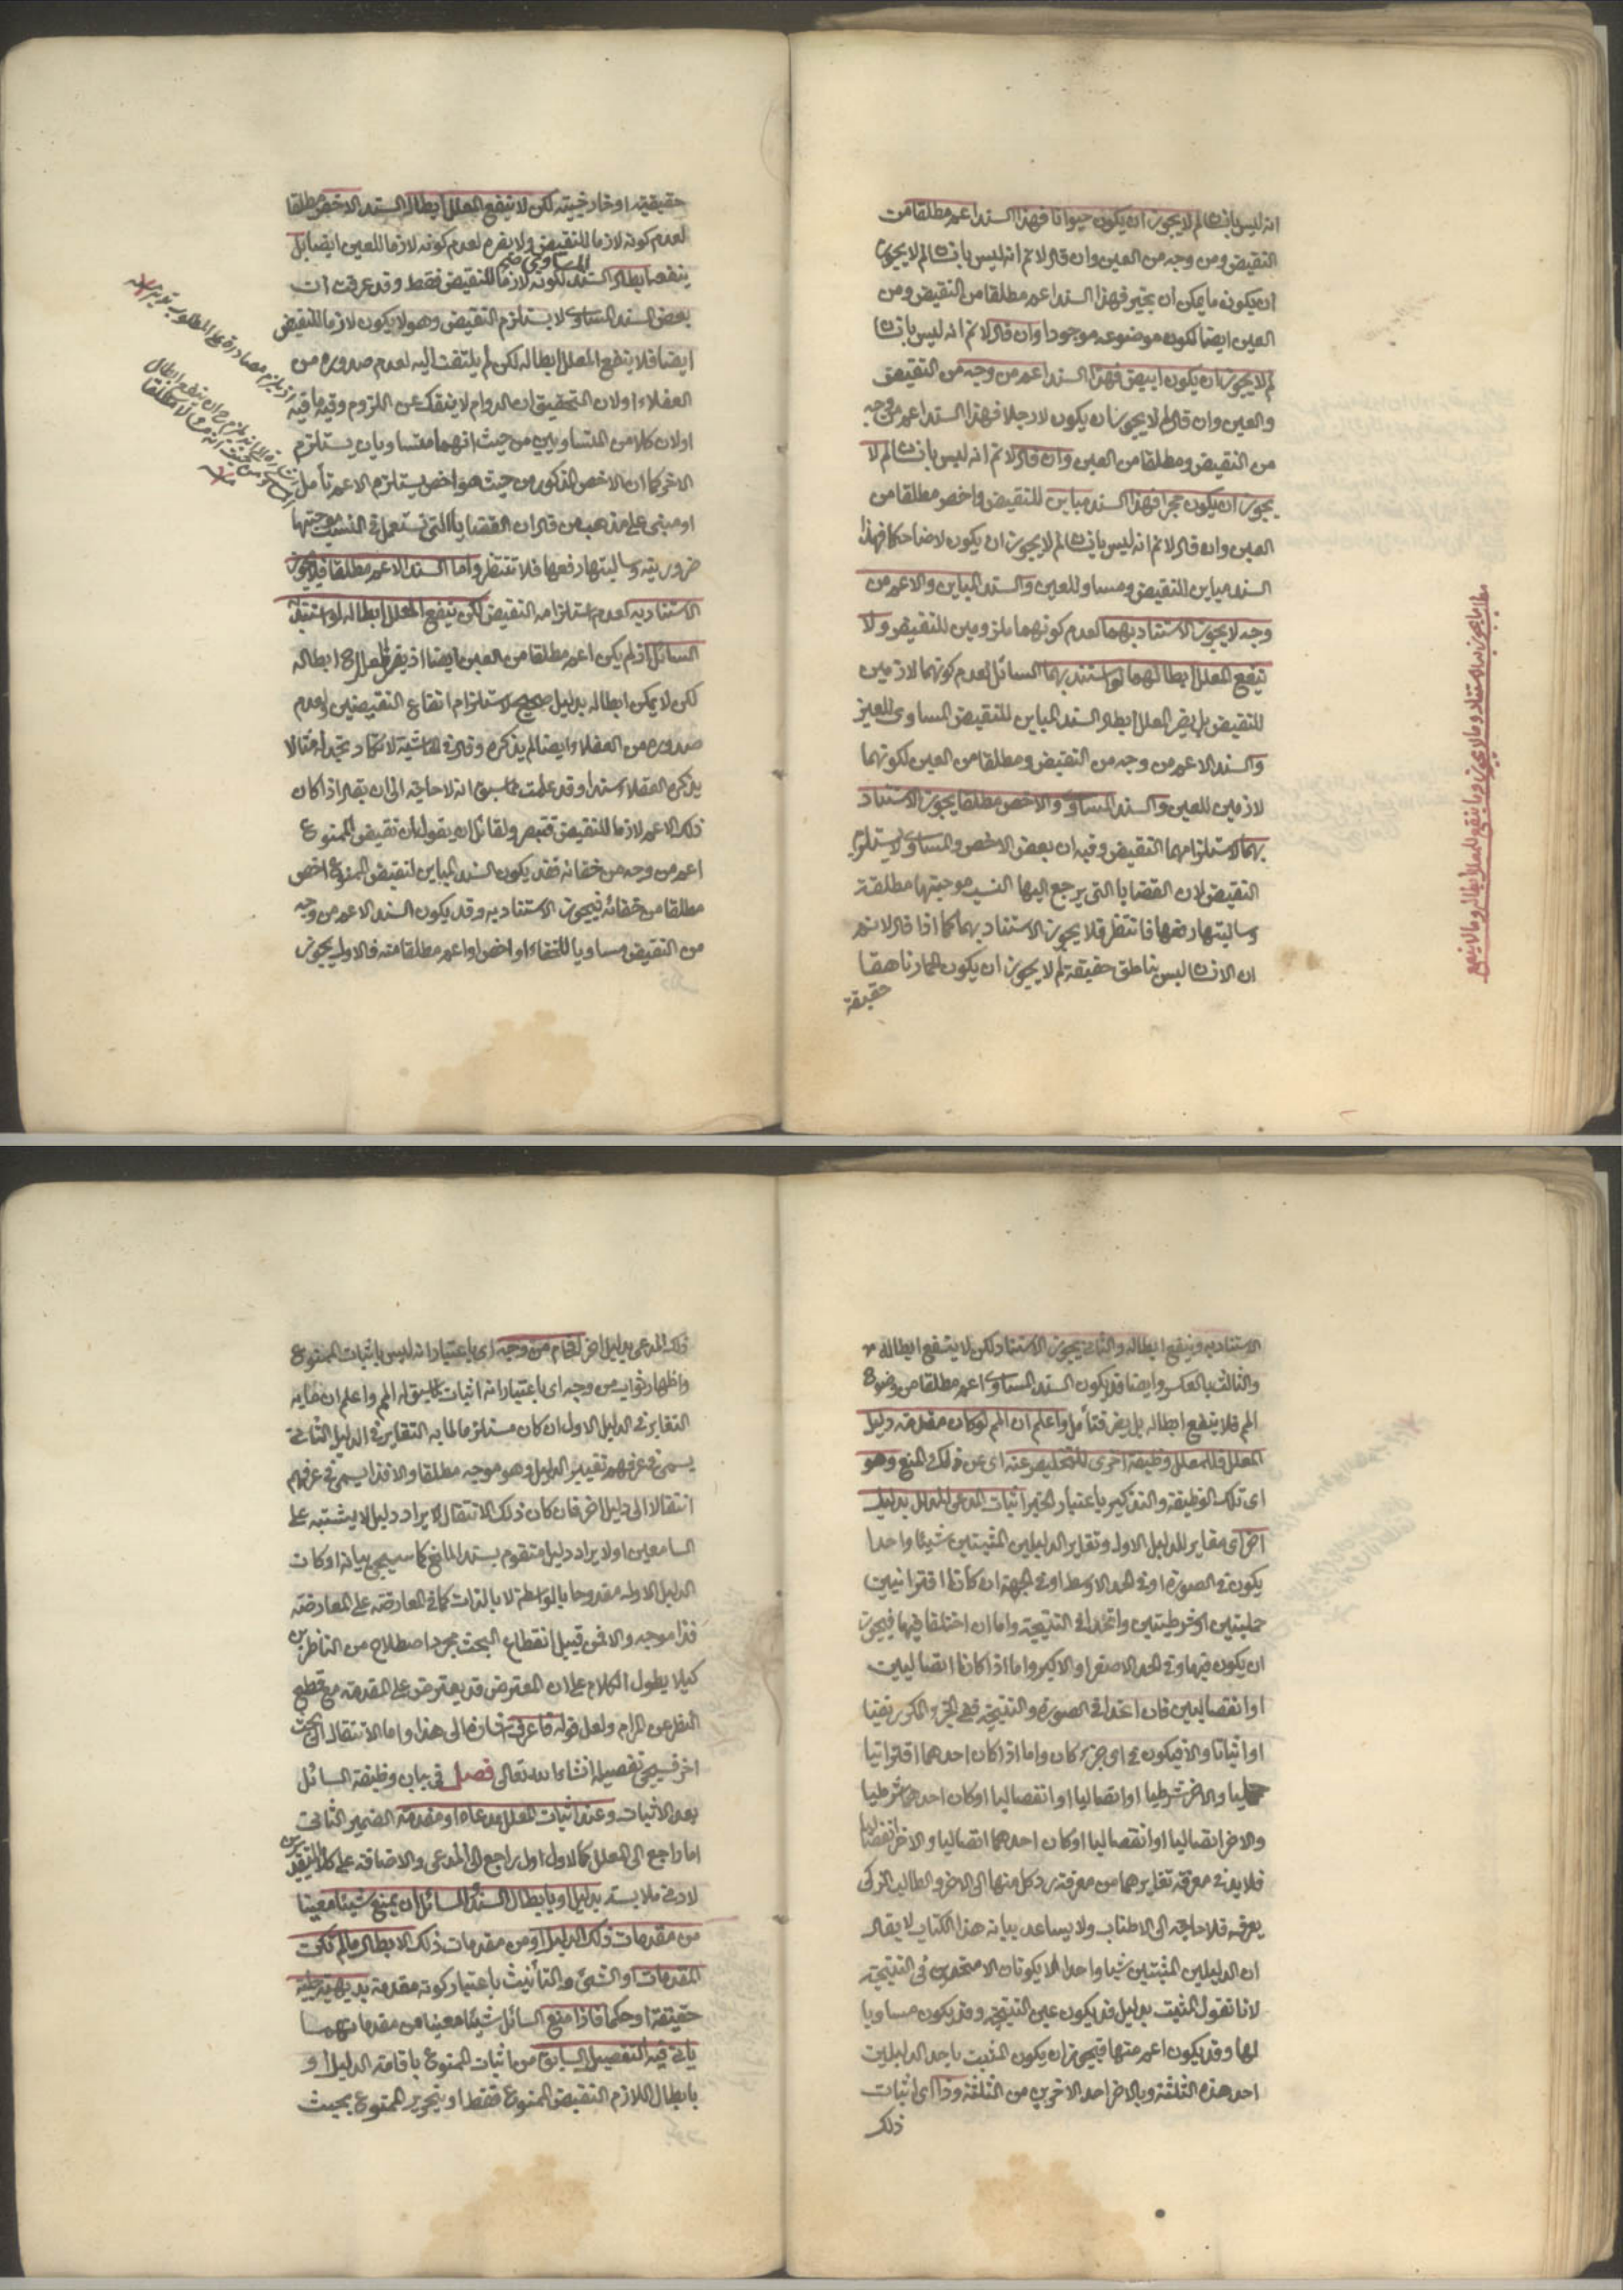 انه ليس بانسان لم لا يجوز ان يكون حيوانا فهذا السند اعم مطلقا من
النقيض ومن وجه من العين وان قال لا نم انه ليس بانسان لم لا يجوز
ان يكون ما يمكن ان يخبر فهذا السند اعم مطلقا من النقيض ومن
العين ايضا لكون موضوعه موجودا وان قال لا نم انه ليس بانسان
لم لا يجوز ان يكون ابيض فهذا السند اعم من وجه من النقيض
والعين وان قال لم لا يجوز ان يكون لا رجلا فهذا السند اعم من وجه
من النقيض ومطلقا من العين وان قال لا نم انه ليس بانسان لم لا
يجوز ان يكون حجرا فهذا السند مباين للنقيض واخص مطلقا من
العين وان قال لا نم انه ليس بانسان لم لا يجوز ان يكون لا ضاحكا فهذا
السند مباين للنقيض ومساو للعين والسند المباين والاعم من
وجه لا يجوز الاستناد بهما لعدم كونهما ملزومين للنقيض ولا
ينفع المعلل ابطالهما لو استند بهما السائل لعدم كونهما لازمين
للنقيض بل يضر المعلل ابطال السند المباين للنقيض المساوى للعين
والسند الاعم من وجه من النقيض ومطلقا من العين لكونهما
لازمين للعين والسند المساوى والاخص مطلقا يجوز الاستناد
بهما لاستلزامهما النقيض وفيه ان بعض الاخص والمساوى لا يستلزم
النقيض لان القضايا التى يرجع اليها النسب موجبتها مطلقة
وسالبتها دفعها فانتظر فلا يجوز الاستناد بهما كما اذا قال لا نم
ان الانسان ليس بناطق حقيقة لم لا يجوز ان يكون الحمار ناهقا
حقيقة
مطلب ما يجوز به الاستناد وما لا يجوز وما ينفع للمعلل ابطاله وما لا ينفع
حقيقية او خارجية لكن لا ينفع المعلل ابطال السند الاخص مطلقا
لعدم كونه لازما للنقيض ولا يضره لعدم كونه لازما للعين ايضا بل
المساوى
ينفعه ابطال السند لكونه لازما للنقيض فقط وقد عرفت ان
بعض السند المساوى لا يستلزم النقيض وهو لا يكون لازما للنقيض
ايضا فلا ينفع المعلل ابطاله لكن لم يلتفت اليه لعدم صدوره من
العقلاء او لان التحقيق ان الدوام لا ينفك عن اللزوم وفيه ما فيه
او لان كلا من المتساويين من حيث انهما متساويان يستلزم
الاخر كما ان الاخص المذكور من حيث هو اخص يستلزم الاعم تأمل
او مبنى على مذهب من قال ان القضايا التى تستعمل فى النسب موجبتها
ضرورية وسالبتها دفعها فلا تنتظر واما السند الاعم مطلقا فلا يجوز
الاستناد به لعدم استلزامه النقيض لكن ينفع المعلل ابطاله لو استند به
السائل اذ لم يكن اعم مطلقا من العين ايضا اذ يضر المعلل ح ابطاله
لكن لا يمكن ابطاله بدليل صحيح لاستلزام ارتفاع النقيضين ولعدم
صدوره من العقلاء ايضا لم يذكره وقال فى الحاشية لا تكاد تجد له مثالا
يذكره العقلاء سندا وقد علمت مما سبق انه لا حاجة الى ان يقال اذا كان
ذلك الاعم لازما للنقيض فتبصر ولقائل ان يقول ان نقيض الممنوع
اعم من وجه من خفائه فقد يكون السند المباين لنقيض الممنوع اخص
مطلقا من خفائه فيجوز الاستناد به وقد يكون السند الاعم من وجه
من النقيض مساويا للخفاء او اخص او اعم مطلقا منه فالاول يجوز
الاستناد به وينفع ابطاله والثانى يجوز الاستناد لكن لا ينفع ابطاله
والثالث بالعكس وايضا قد يكون السند المساوى اعم مطلقا من وضوح
المم فلا ينفع ابطاله بل يضر فتأمل واعلم ان المم لو كان مقدمة دليل
المعلل فللمعلل وظيفة اخرى للتخليص عنه اى عن ذلك المنع وهو
اى تلك الوظيفة والتذكير باعتبار الخبر اثبات المدعى المدلل بدليل
اخر اى مغاير للدليل الاول وتغاير الدليلين المثبتين شيئا واحدا
يكون فى الصورة او فى الحد الاوسط او فى الجهة ان كانا اقترانيين
حمليتين او شرطيتين واتحدا فى النتيجة واما ان اختلفا فيها فيجوز
ان يكون فيها وفى الحد الاصغر او الاكبر واما اذا كانا اتصاليين
او انفصاليين فان اتحدا فى الصورة والنتيجة ففى الجزء المكرر نفيا
او اثباتا والا فيكون فى اى جزء كان واما اذا كان احدهما اقترانيا
حمليا والاخر شرطيا او اتصاليا او انفصاليا او كان احدهما شرطيا
والاخر اتصاليا او انفصاليا او كان احدهما اتصاليا والاخر انفصاليا
فلا بد فى معرفة تغايرهما من معرفة رد كل منها الى الاخر والطالب الزكى
يعرفه فلا حاجة الى الاطناب ولا يساعد بيانه هذا الكتاب لا يقال
ان الدليلين المثبتين شيئا واحدا لا يكونان الا متحدين فى النتيجة
لانا نقول المثبت بدليل قد يكون عين النتيجة وقد يكون مساويا
لها وقد يكون اعم منها فيجوز ان يكون المثبت باحد الدليلين
احد هذه الثلثة وبالاخر احد الاخرين من الثلثة وذا اى اثبات
ذلك
ذلك المدعى بدليل اخر افحام من وجه اى باعتبار انه ليس باثبات الممنوع
واظهار ثواب من وجه اى باعتبار انه اثبات لما سبق له المم واعلم ان ما به
التغاير فى الدليل الاول ان كان مستلزما لما به التغاير فى الدليل الثانى
يسمى فى عرفهم تغيير الدليل وهو موجه مطلقا والا فذا يسمى فى عرفهم
انتقالا الى دليل اخر فان كان ذلك الانتقال لايراد دليل لا يشتبه على
السامعين او لايراد دليل متقوم بسند المانع كما سيجئ بيانه او كان
الدليل الاول مقدوحا بالواسطة لا بالذات كما فى المعارضة على المعارضة
فذا موجه والا فمن قبيل انقطاع البحث بمجرد اصطلاح من الناظرين
كيلا يطول الكلام على ان المعترض قد يعترض على المقدمة مع قطع
النظر عن المرام ولعل قوله فاعرفه اشارة الى هذا واما الانتقال الى بحث
اخر فسيجئ تفصيله انشاء الله تعالى فصل فى بيان وظيفة السائل
بعد الاثبات وعند اثبات المعلل مدعاه او مقدمة الضمير الثانى
اما راجع الى المعلل كالاول او راجع الى المدعى والاضافة على كلا التقديرين
لادنى ملابسة بدليل او بابطال السند للسائل ان يمنع شيئا معينا
من مقدمات ذلك الدليل او من مقدمات ذلك الابطال ما لم تكن
المقدمات او الشئ والتأنيث باعتبار كونه مقدمة بديهية جلية
حقيقة او حكما فاذا منع السائل شيئا معينا من مقدماتهما
يأتى فيه التفصيل السابق من اثبات الممنوع باقامة الدليل او
بابطال اللازم النقيض الممنوع فقط او بتحرير الممنوع بحيث